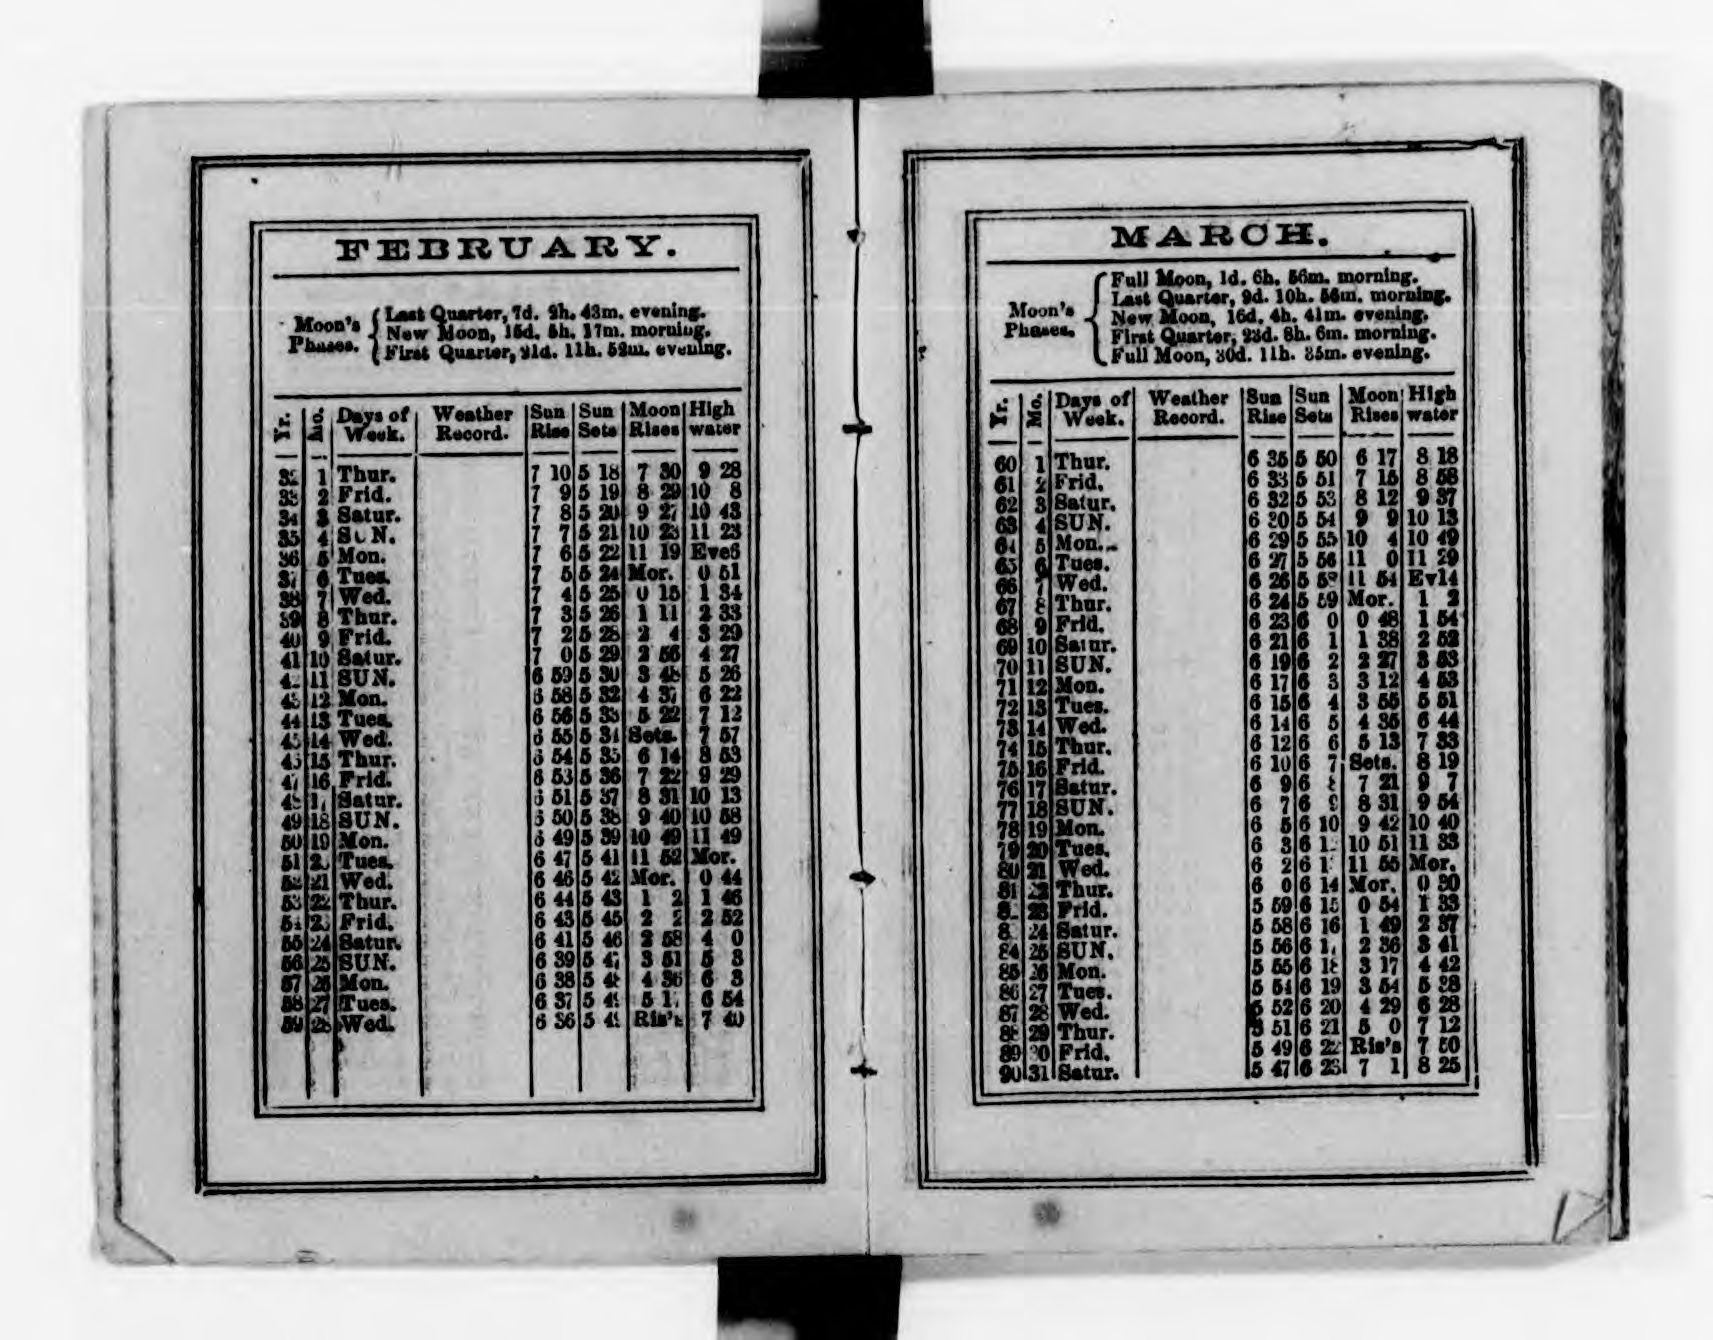 FEBRUARY.
Moon's Phases.
Last Quarter, 7d. 9h. 43m. evening.
New Moon, 15d. 5h. 17m. morning.
First Quarter, 21d. 11h. 52m. evening.
Yr. Mo. Days of Week. Weather Record. Sun Rise Sun Sets Moon Rises High water
32 1 Thur. 7 10 5 18 7 30 9 28
33 2 Frid. 7 9 5 19 8 29 10 8
34 3 Satur. 7 8 5 20 9 27 10 43
35 4 SUN. 7 7 5 21 10 23 11 23
36 5 Mon. 7 6 5 22 11 19 Eve6
37 6 Tues. 7 5 5 24 Mor. 0 51
38 7 Wed. 7 4 5 25 0 15 1 34
39 8 Thur. 7 3 5 26 1 11 2 33
40 9 Frid. 7 2 5 28 2 4 3 29
41 10 Satur. 7 0 5 29 2 56 4 27
42 11 SUN. 6 59 5 30 3 48 5 26
43 12 Mon. 6 58 5 32 4 37 6 22
44 13 Tues. 6 56 5 33 5 22 7 12
45 14 Wed. 6 55 5 34 Sets. 7 57
46 15 Thur. 6 54 5 35 6 14 8 53
47 16 Frid. 6 53 5 36 7 22 9 29
48 17 Satur. 6 51 5 37 8 31 10 13
49 18 SUN. 6 50 5 38 9 40 10 58
50 19 Mon. 6 49 5 39 10 49 11 49
51 20 Tues. 6 47 5 41 11 52 Mor.
52 21 Wed. 6 46 5 42 Mor. 0 44
53 22 Thur. 6 44 5 43 1 2 1 46
54 23 Frid. 6 43 5 45 2 2 2 52
55 24 Satur. 6 41 5 46 2 58 4 0
56 25 SUN. 6 39 5 47 3 51 5 3
57 26 Mon. 6 38 5 48 4 36 6 3
58 27 Tues. 6 37 5 5 6 54
59 28 Wed. 6 36 5 Ris's 7 40
MARCH.
Moon's Phases.
Full Moon, 1d. 6h. 56m. morning.
Last Quarter, 9d. 10h. 56m. morning.
New Moon, 16d. 4h. 41m. evening.
First Quarter, 23d. 8h. 6m. morning.
Full Moon, 30d. 11h. 35m. evening.
Yr. Mo. Days of Week. Weather Record. Sun Rise Sun Sets Moon Rises High water
60 1 Thur. 6 35 5 50 6 17 8 18
61 2 Frid. 6 33 5 51 7 15 8 58
62 3 Satur. 6 32 5 53 8 12 9 37
63 4 SUN. 6 30 5 54 9 9 10 13
64 5 Mon. 6 29 5 55 10 4 10 49
65 6 Tues. 6 27 5 56 11 0 11 29
66 7 Wed. 6 26 5 11 54 Ev14
67 8 Thur. 6 24 5 59 Mor. 1 2
68 9 Frid. 6 23 6 0 0 48 1 54
69 10 Satur. 6 21 6 1 1 38 2 52
70 11 SUN. 6 19 6 2 2 27 3 53
71 12 Mon. 6 17 6 3 3 12 4 53
72 13 Tues. 6 15 6 4 3 55 5 51
73 14 Wed. 6 14 6 5 4 35 6 44
74 15 Thur. 6 12 6 6 5 13 7 33
75 16 Frid. 6 10 6 7 Sets. 8 19
76 17 Satur. 6 9 6 8 7 21 9 7
77 18 SUN. 6 7 6 9 8 31 9 54
78 19 Mon. 6 5 6 10 9 42 10 40
79 20 Tues. 6 3 6 10 51 11 33
80 21 Wed. 6 2 6 11 55 Mor.
81 22 Thur. 6 0 6 14 Mor. 0 30
82 23 Frid. 5 59 6 15 0 54 1 33
83 24 Satur. 5 58 6 16 1 49 2 37
84 25 SUN. 5 56 6 17 2 36 3 41
85 26 Mon. 5 55 6 18 3 17 4 42
86 27 Tues. 5 54 6 19 3 54 5 38
87 28 Wed. 5 52 6 20 4 29 6 28
88 29 Thur. 5 51 6 21 5 0 7 12
89 30 Frid. 5 49 6 22 Ris's 7 50
90 31 Satur. 5 47 6 23 7 1 8 25